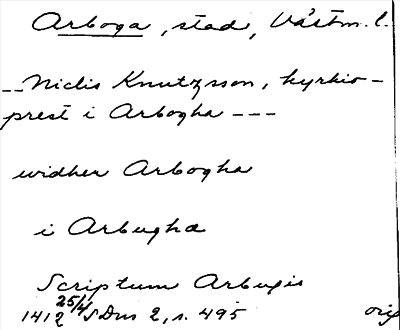 Arboga, stad, Västm. l.
-- Niclis Knutzsson, kyrkio-
prest i Arbogha ---
widher Arbogha
i Arbugha
Scriptum Arbugis
1412 25/4 SDns 2, s. 495 orig